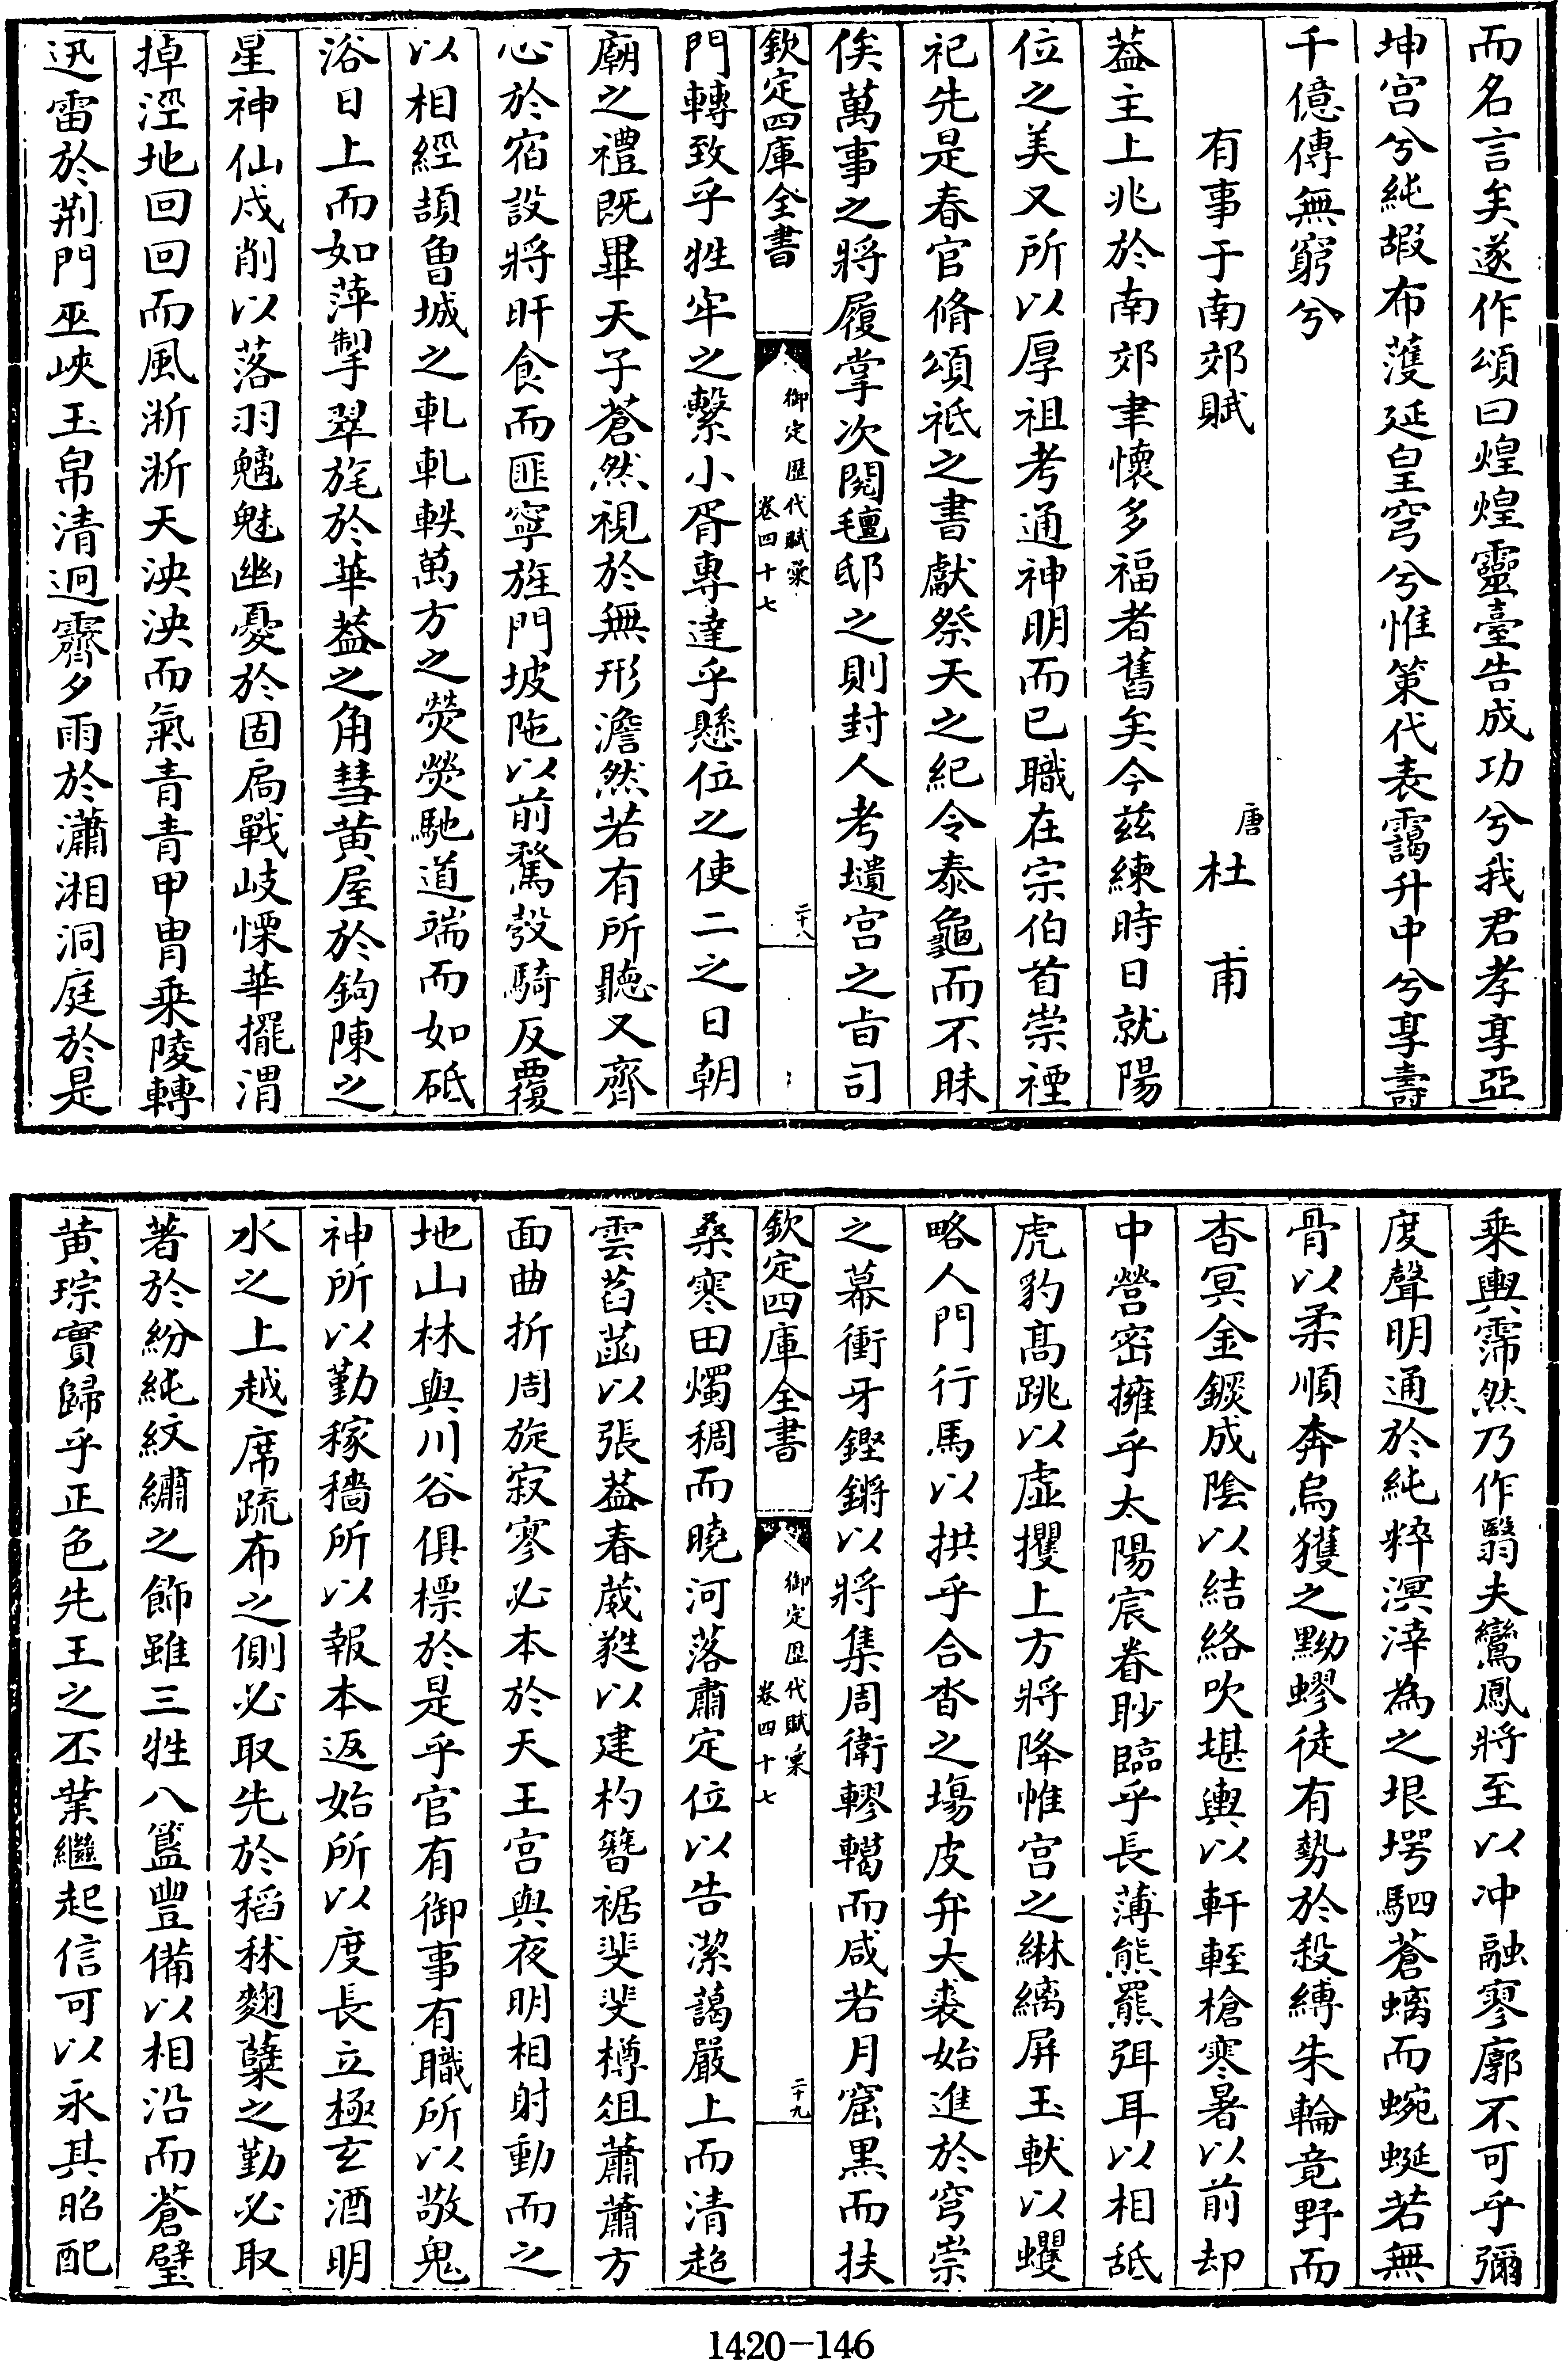 而名言矣遂作頌曰煌煌靈臺告成功兮我君孝享亞
坤宫兮純嘏布濩延皇穹兮惟策代表靄升中兮享壽
千億傳無窮兮
有事于南郊賦
唐杜甫
蓋主上兆於南郊聿懷多福者舊矣今兹練時日就陽
位之美又所以厚祖考通神明而已職在宗伯首崇禋
祀先是春官脩頌祗之書獻祭天之紀令泰龜而不昧
俟萬事之將履掌次閲氊邸之則封人考壝宫之㫖司
欽定四庫全書
御定歴代賦彚
卷四十七
二十八
門轉致乎牲牢之繫小胥專達乎懸位之使二之日朝
廟之禮既畢天子蒼然視於無形澹然若有所聽又齊
心於宿設將旰食而匪寧旌門坡陁以前騖彀騎反覆
以相經頡曾城之軋軋軼萬方之熒熒馳道端而如砥
浴日上而如萍掣翠旄於華蓋之角彗黄屋於鉤陳之
星神仙戍削以落羽魑魅幽憂於固扃戰岐慄華擺渭
掉涇地回回而風淅淅天泱泱而氣青青甲胄乗陵轉
迅雷於荆門巫峽玉帛清迥霽夕雨於瀟湘洞庭於是
乗輿霈然乃作翳夫鸞鳳將至以冲融寥廓不可乎彌
度聲明通於純粹溟涬為之垠堮駟蒼螭而蜿蜒若無
骨以柔順奔烏獲之黝蟉徒有勢於殺縛朱輪竟野而
杳冥金鍐成陰以結絡吹堪輿以軒輊槍寒暑以前却
中營密擁乎太陽宸眷眇臨乎長薄熊羆弭耳以相舐
虎豹髙跳以虚攫上方將降帷宫之綝縭屏玉軑以蠼
略人門行馬以拱乎合沓之場皮弁大裘始進於穹崇
之幕衝牙鏗鏘以將集周衛轇轕而咸若月窟黒而扶
欽定四庫全書
御定歴代賦彚
卷四十七
二十九
桑寒田燭稠而曉河落肅定位以告潔藹嚴上而清超
雲菡萏以張蓋春葳蕤以建杓簪裾斐斐樽俎蕭蕭方
面曲折周旋寂寥必本於天王宫與夜明相射動而之
地山林與川谷俱標於是乎官有御事有職所以敬鬼
神所以勤稼穡所以報本返始所以度長立極玄酒明
水之上越席疏布之側必取先於稻秫麴糵之勤必取
著於紛純紋繡之飾雖三牲八簋豐備以相沿而蒼璧
黄琮實歸乎正色先王之丕業繼起信可以永其昭配
1420-146